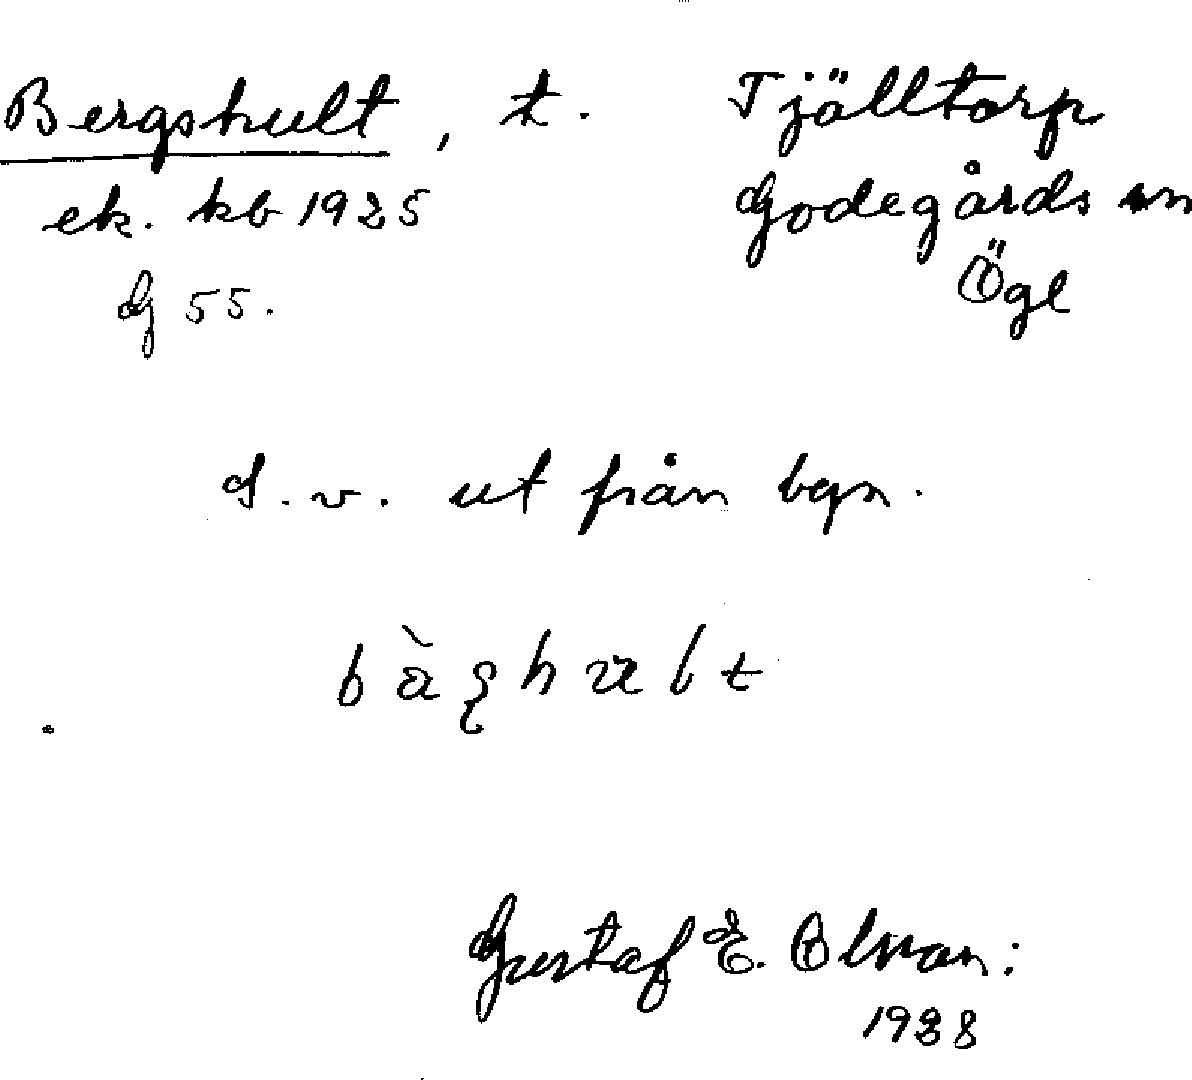 Bergshult, t. Tjälltorp
ek. kb 1925 Godegårds sn
G 55. Ögl
S. v. ut från bgn.
Gustaf E. Olson:
1938